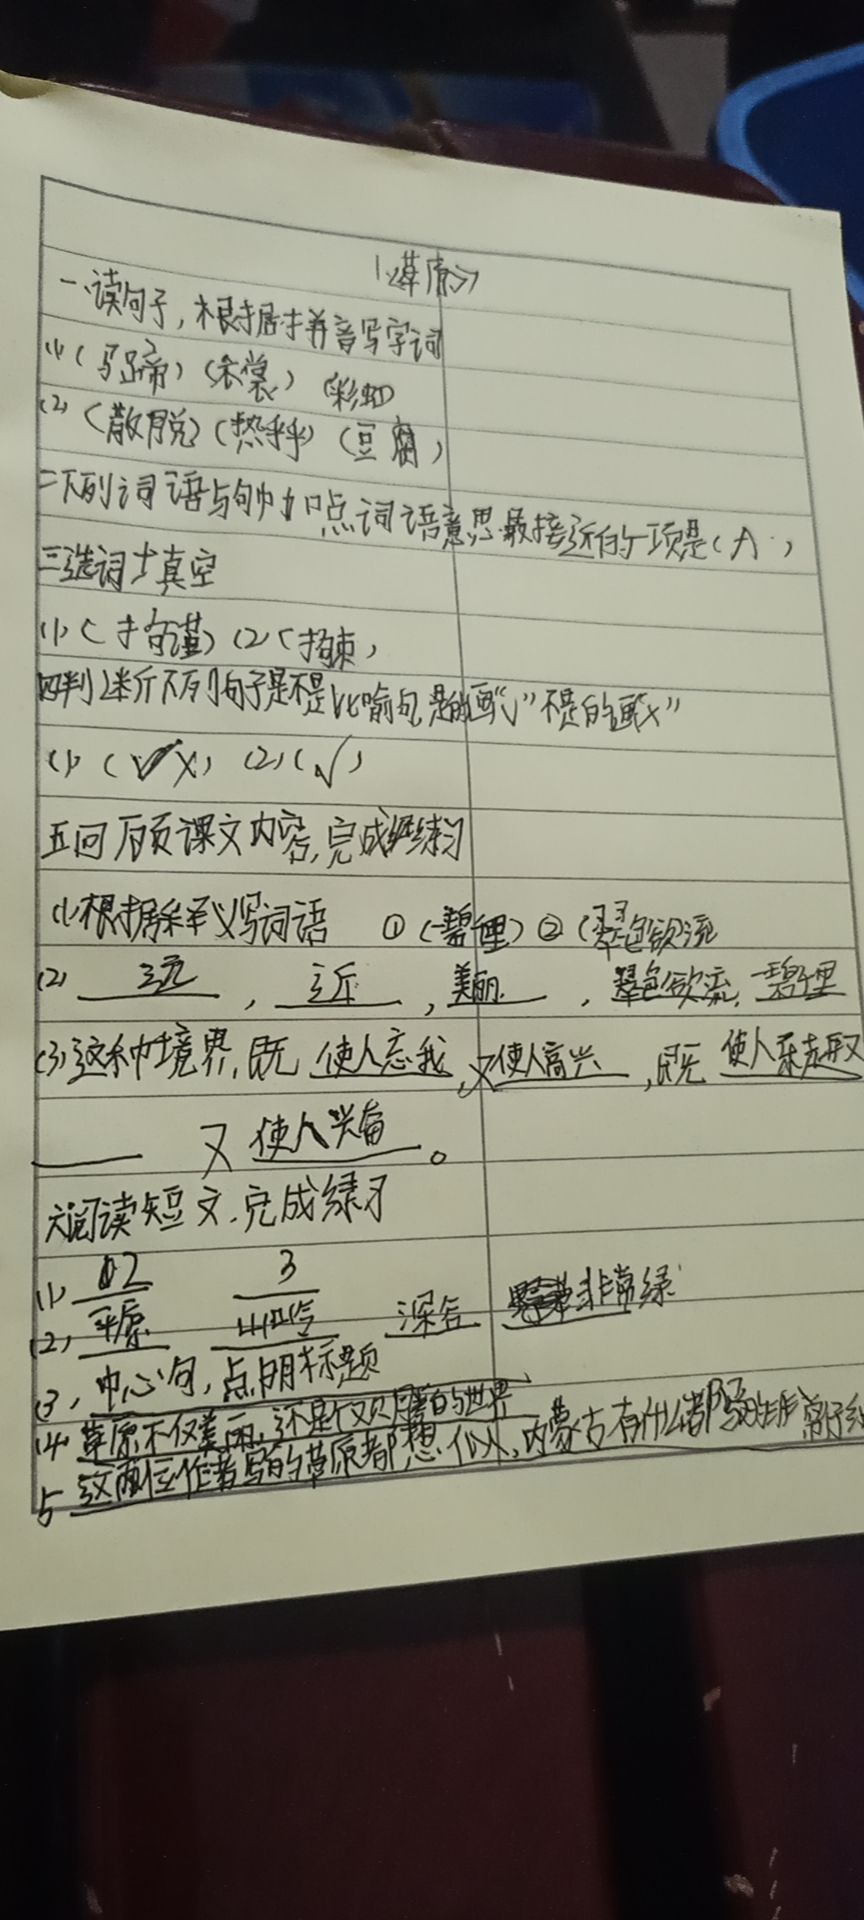 1《草原》
一、读句子，根据拼音写字词
(1)（马蹄）（衣裳）（彩虹）
(2)（散脱）（热乎乎）（豆腐）
二下列词语与句中加点词语意思最接近的一项是（A）
三选词填空
(1)（拘谨）(2)（拘束）
四判断下列句子是不是比喻句,是的画“√”不是的画“×”
(1)（×）(2)（√）
五回顾课文内容,完成练习
(1)根据释义写词语 ①（一碧千里）②（翠色欲流
(2) 远，近，美丽，翠色欲流，一碧千里
(3)这种境界,既使人忘我,又使人高兴,既使人
又使人兴奋。
六阅读短文.完成练习
(1) 2 3
(2) 平原 山岭 深谷 非常绿
(3)，中心句,点明标题
(4) 草原不仅美丽,还是
5 这两位作者写的草原都想似人,内蒙古有什么都